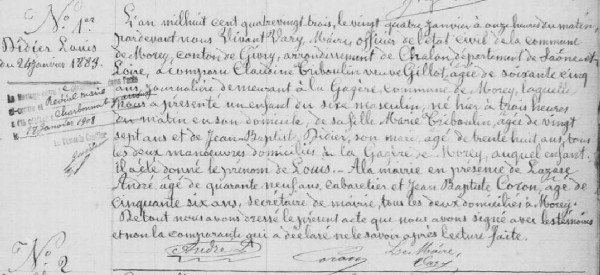 No. 1er
Didier Louis
du 24 janvier 1883.
Reviel marie
Charbonnet
18 janvier 1908
L'an mil huit cent quatre vingt trois, le vingt quatre janvier à onze heures du matin,
pardevant nous Vivant Vary, Maire, officier de l'état civil de la commune
de Morey, canton de Givry, arrondissement de Chalon, département de Saône et
Loire, a comparu Claudine Triboulin veuve Gillot, agée de soixante cinq
ans, journalière demeurant à la Gagère, commune de Morey, laquelle
nous a présenté un enfant du sexe masculin, né hier à trois heures
du matin en son domicile, de sa fille Marie Triboulin, agée de vingt
sept ans et de Jean Baptiste Didier, son mari, agé de trente huit ans, tous
les deux manoeuvres domiciliés à la Gagère, Morey, auquel enfant
il a été donné le prénom de Louis. A la mairie en présence de Lazare
André, agé de quarante neuf ans, cabaretier et Jean Baptiste Coron, agé de
cinquante six ans, secrétaire de mairie, tous les deux domiciliés à Morey.
De tout nous avons dressé le présent acte que nous avons signé avec les témoins
et non la comparante qui a déclaré ne le savoir après lecture faite.
André L
Coron
Le Maire,
Vary
No. 2